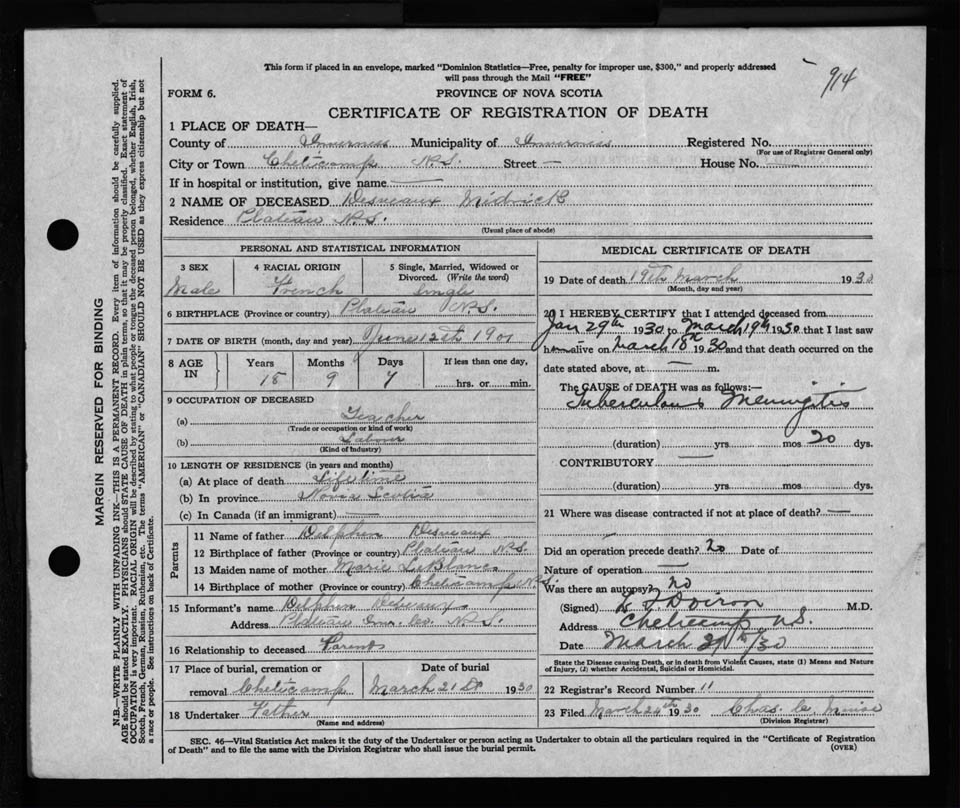 914
This form if placed in an envelope, marked "Dominion Statistics—Free, penalty for improper use, $300," and properly addressed
will pass through the Mail "FREE"
FORM 6.
PROVINCE OF NOVA SCOTIA
CERTIFICATE OF REGISTRATION OF DEATH
1 PLACE OF DEATH—
County of Inverness Municipality of Inverness Registered No.
(For use of Registrar General only)
City or Town Cheticamp N.S. Street — House No.
If in hospital or institution, give name —
2 NAME OF DECEASED Desveaux
Residence Plateau N.S.
(Usual place of abode)
PERSONAL AND STATISTICAL INFORMATION
3 SEX 4 RACIAL ORIGIN 5 Single, Married, Widowed or
Divorced. (Write the word)
Male French Single
6 BIRTHPLACE (Province or country) Plateau N.S.
7 DATE OF BIRTH (month, day and year) June 12th
8 AGE
IN
Years Months Days If less than one day,
18 9 7 hrs. or min.
9 OCCUPATION OF DECEASED
(a) Teacher
(Trade or occupation or kind of work)
(b) Labour
(Kind of industry)
10 LENGTH OF RESIDENCE (in years and months)
(a) At place of death Lifetime
(b) In province Nova Scotia
(c) In Canada (if an immigrant) —
Parents
11 Name of father Delphin Desveaux
12 Birthplace of father (Province or country) Plateau N.S.
13 Maiden name of mother Marie LeBlanc
14 Birthplace of mother (Province or country) Cheticamp N.S.
15 Informant's name Delphin Desveaux
Address Plateau Inv. Co. N.S.
16 Relationship to deceased Parents
17 Place of burial, cremation or Date of burial
removal Cheticamp March 21st 1930
18 Undertaker Father
(Name and address)
MEDICAL CERTIFICATE OF DEATH
19 Date of death 19th March 1930
(Month, day and year)
20 I HEREBY CERTIFY that I attended deceased from
Jan 29th 1930 to March 19th 1930 that I last saw
h— alive on March 18th 1930 and that death occurred on the
date stated above, at — m.
The CAUSE of DEATH was as follows:—
Tuberculous Meningitis
(duration) yrs. mos 20 dys.
CONTRIBUTORY —
(duration) yrs. mos. dys.
21 Where was disease contracted if not at place of death? —
Did an operation precede death? no Date of
Nature of operation —
Was there an autopsy? no
(Signed) Doiron M.D.
Address Cheticamp N.S.
Date March /30
State the Disease causing Death, or in death from Violent Causes, state (1) Means and Nature
of Injury, (2) whether Accidental, Suicidal or Homicidal.
22 Registrar's Record Number 11
23 Filed March 24th 1930 Chas.
(Division Registrar)
SEC. 46—Vital Statistics Act makes it the duty of the Undertaker or person acting as Undertaker to obtain all the particulars required in the "Certificate of Registration
of Death" and to file the same with the Division Registrar who shall issue the burial permit.
(OVER)
MARGIN RESERVED FOR BINDING
N.B.—WRITE PLAINLY WITH UNFADING INK—THIS IS A PERMANENT RECORD. Every item of information should be carefully supplied.
AGE should be stated EXACTLY. PHYSICIANS should STATE CAUSE OF DEATH in plain terms, so that it may be properly classified. Exact statement of
OCCUPATION is very important. RACIAL ORIGIN will be described by stating to what people or tongue the deceased person belonged, whether English, Irish,
Scotch, French, German, Russian, Ruthenian, etc. The terms "AMERICAN" or "CANADIAN" SHOULD NOT BE USED as they express citizenship but not
a race or people. See instructions on back of Certificate.